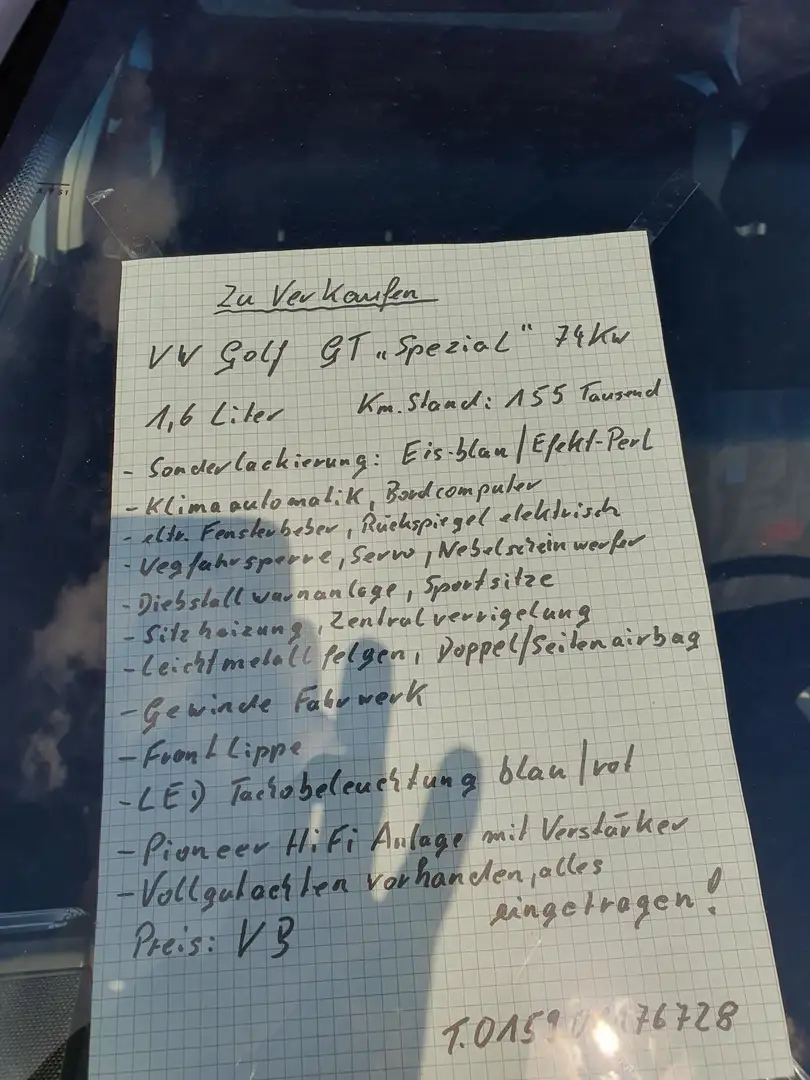 Zu Verkaufen
VW Golf GT „Spezial" 74Kw
1,6 Liter Km.Stand: 155 Tausend
- Sonderlackierung: Eis-blau/Efekt-Perl
- Klimaautomatik, Bordcomputer
- eltr. Fensterheber, Rückspiegel elektrisch
- Wegfahrsperre, Servo, Nebelscheinwerfer
- Diebstallwarnanlage, Sportsitze
- Sitzheizung, Zentralverrigelung
- Leichtmetallfelgen, Doppel/Seitenairbag
- Gewinde Fahrwerk
- FrontLippe
- LED Tachobeleuchtung blau/rot
- Pioneer HiFi Anlage mit Verstärker
- Vollgutachten vorhanden, alles
eingetragen!
Preis: VB